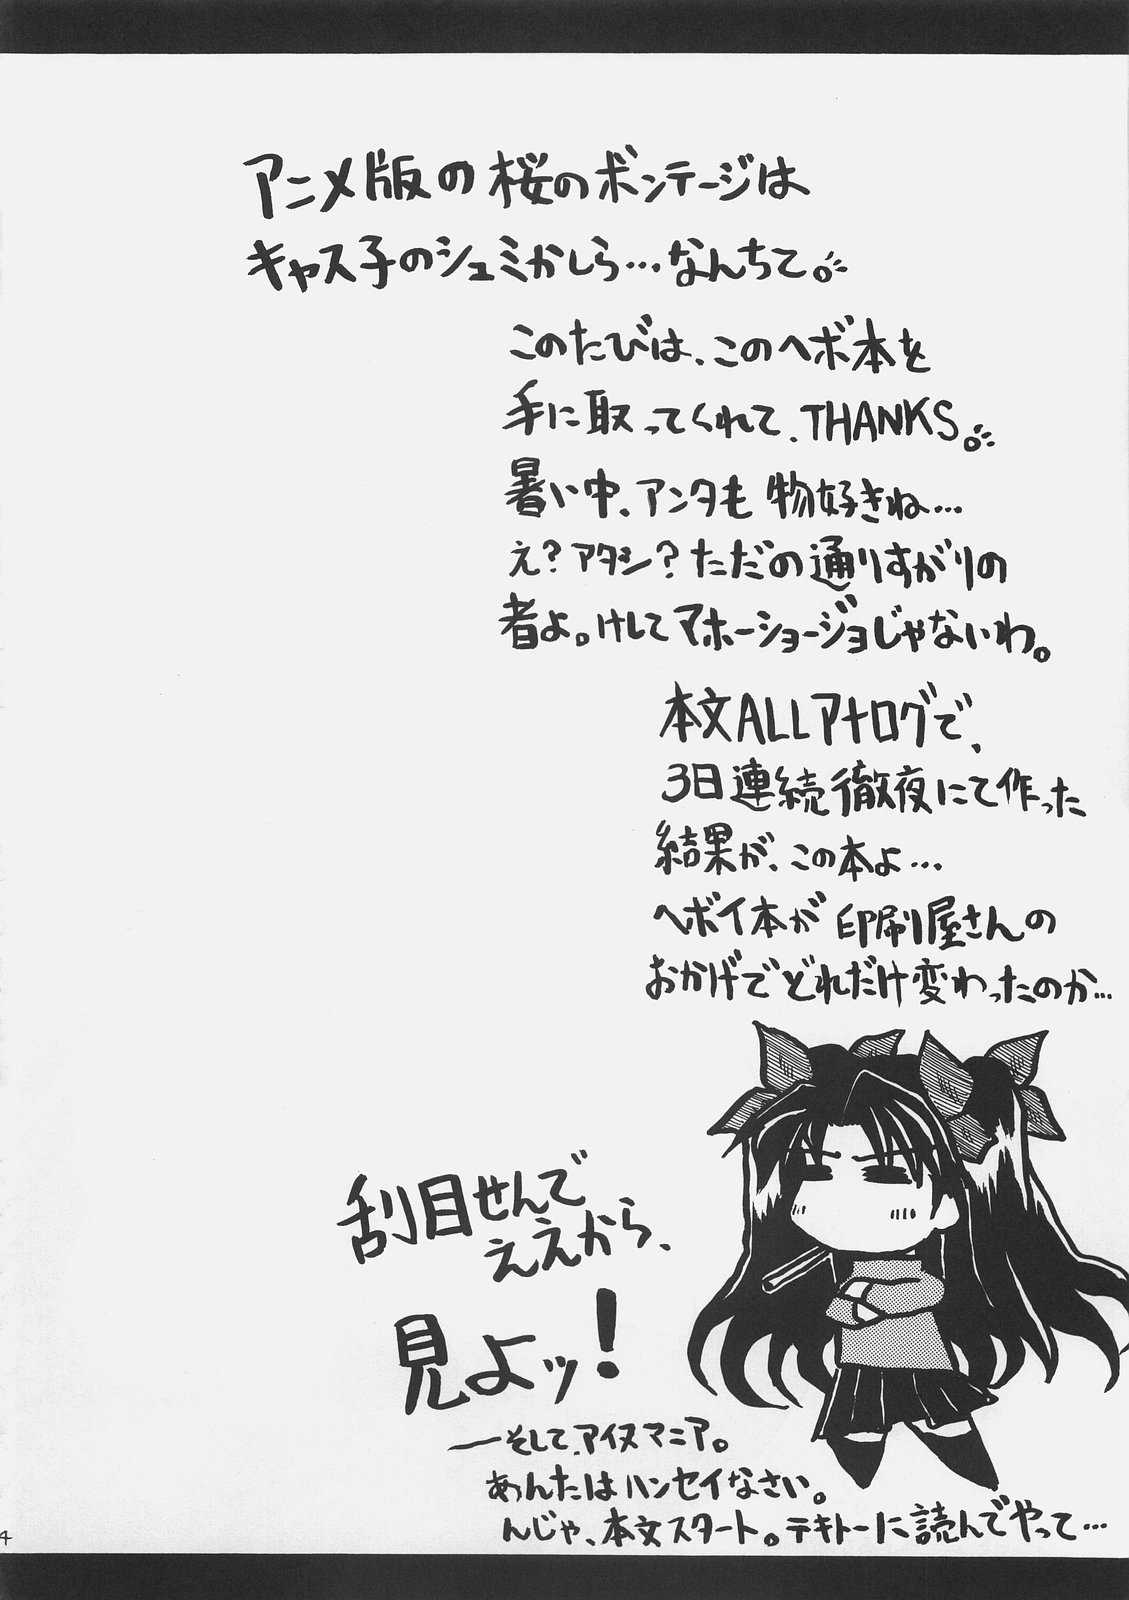 アニメ版の桜のボンテージは
キャス子のシュミかしら…なんちて。
このたびは、このヘボ本を
手に取ってくれて、THANKS。
暑い中、アンタも物好きね…
え?アタシ?ただの通りすがりの
者よ。けしてマホーショージョじゃないわ。
本文ALLアナログで、
3日連続徹夜にて作った
結果が、この本よ…
ヘボイ本が印刷屋さんの
おかげでどれだけ変わったのか…
刮目せんで
ええから、
見よッ!
――そして、アイヌマニア。
あんたはハンセイなさい。
んじゃ、本文スタート。テキトーに読んでやって…
4